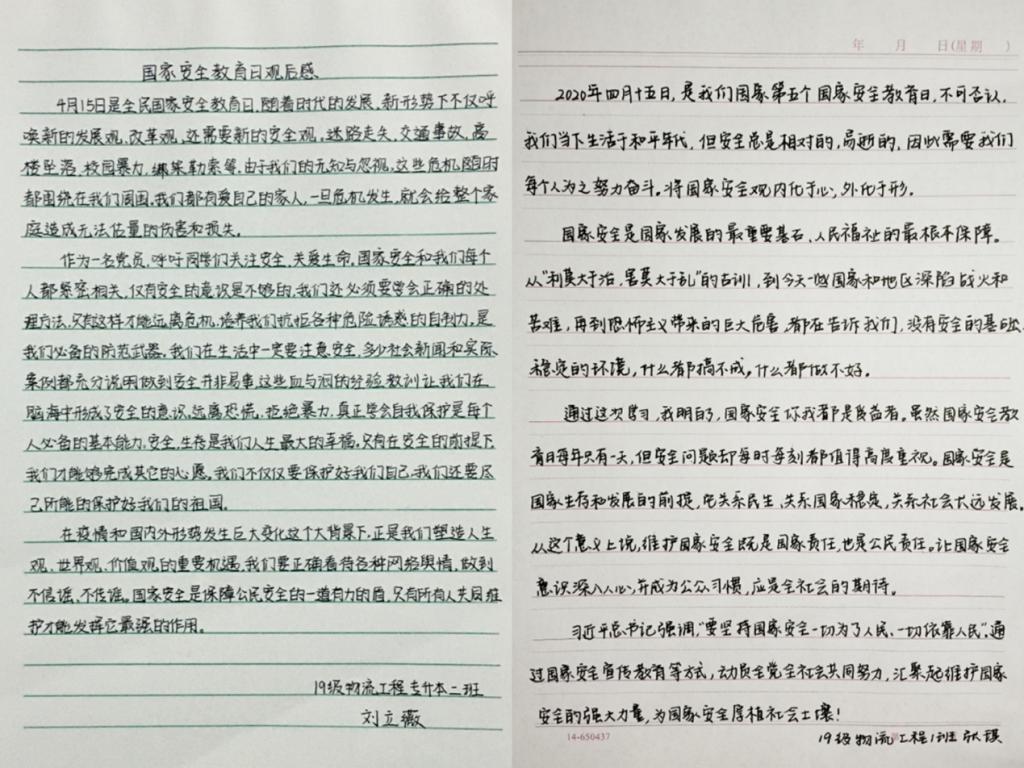 国家安全教育日观后感
4月15日是全民国家安全教育日,随着时代的发展,新形势下不仅呼
唤新的发展观,改革观,还需要新的安全观,迷路走失,交通事故,高
楼坠落,校园暴力,绑架勒索等,由于我们的无知与忽视,这些危机随时
都围绕在我们周围,我们都有爱自己的家人,一旦危机发生,就会给整个家
庭造成无法估量的伤害和损失。
作为一名党员,呼吁同学们关注安全,关爱生命,国家安全和我们每个
人都紧密相关,仅有安全的意识是不够的,我们还必须要学会正确的处
理方法,只有这样才能远离危机,培养我们抗拒各种危险诱惑的自制力,是
我们必备的防范武器,我们在生活中一定要注意安全,多少社会新闻和实际
案例都充分说明做到安全并非易事,这些血与泪的经验教训让我们在
脑海中形成了安全的意识,远离恐慌,拒绝暴力,真正学会自我保护是每个
人必备的基本能力,安全,生存是我们人生最大的幸福,只有在安全的前提下
我们才能够完成其它的心愿,我们不仅仅要保护好我们自己,我们还要尽
己所能的保护好我们的祖国。
在疫情和国内外形势发生巨大变化这个大背景下,正是我们塑造人生
观、世界观、价值观的重要机遇,我们要正确看待各种网络舆情,做到
不信谣、不传谣。国家安全是保障公民安全的一道有力的盾,只有所有人共同维
护才能发挥它最强的作用。
19级物流工程专升本二班
刘立薇
年 月 日(星期 )
2020年四月十五日,是我们国家第五个国家安全教育日,不可否认,
我们当下生活于和平年代,但安全总是相对的,易逝的,因此需要我们
每个人为之努力奋斗。将国家安全观内化于心,外化于形。
国家安全是国家发展的最重要基石、人民福祉的最根本保障。
从"利莫大于治,害莫大于乱"的古训,到今天一些国家和地区深陷战火和
苦难,再到恐怖主义带来的巨大危害,都在告诉我们,没有安全的基础、
稳定的环境,什么都搞不成,什么都做不好。
通过这次学习,我明白了,国家安全你我都是受益者。虽然国家安全教
育日每年只有一天,但安全问题却每时每刻都值得高度重视。国家安全是
国家生存和发展的前提,它关系民生、关系国家稳定,关系社会长远发展。
从这个意义上说,维护国家安全既是国家责任,也是公民责任。让国家安全
意识深入人心,并成为公众习惯,应是全社会的期待。
习近平总书记强调,"要坚持国家安全一切为了人民、一切依靠人民"。通
过国家安全宣传教育等方式,动员全党全社会共同努力,汇聚起维护国家
安全的强大力量,为国家安全厚植社会土壤!
14-650437
19级物流工程1班